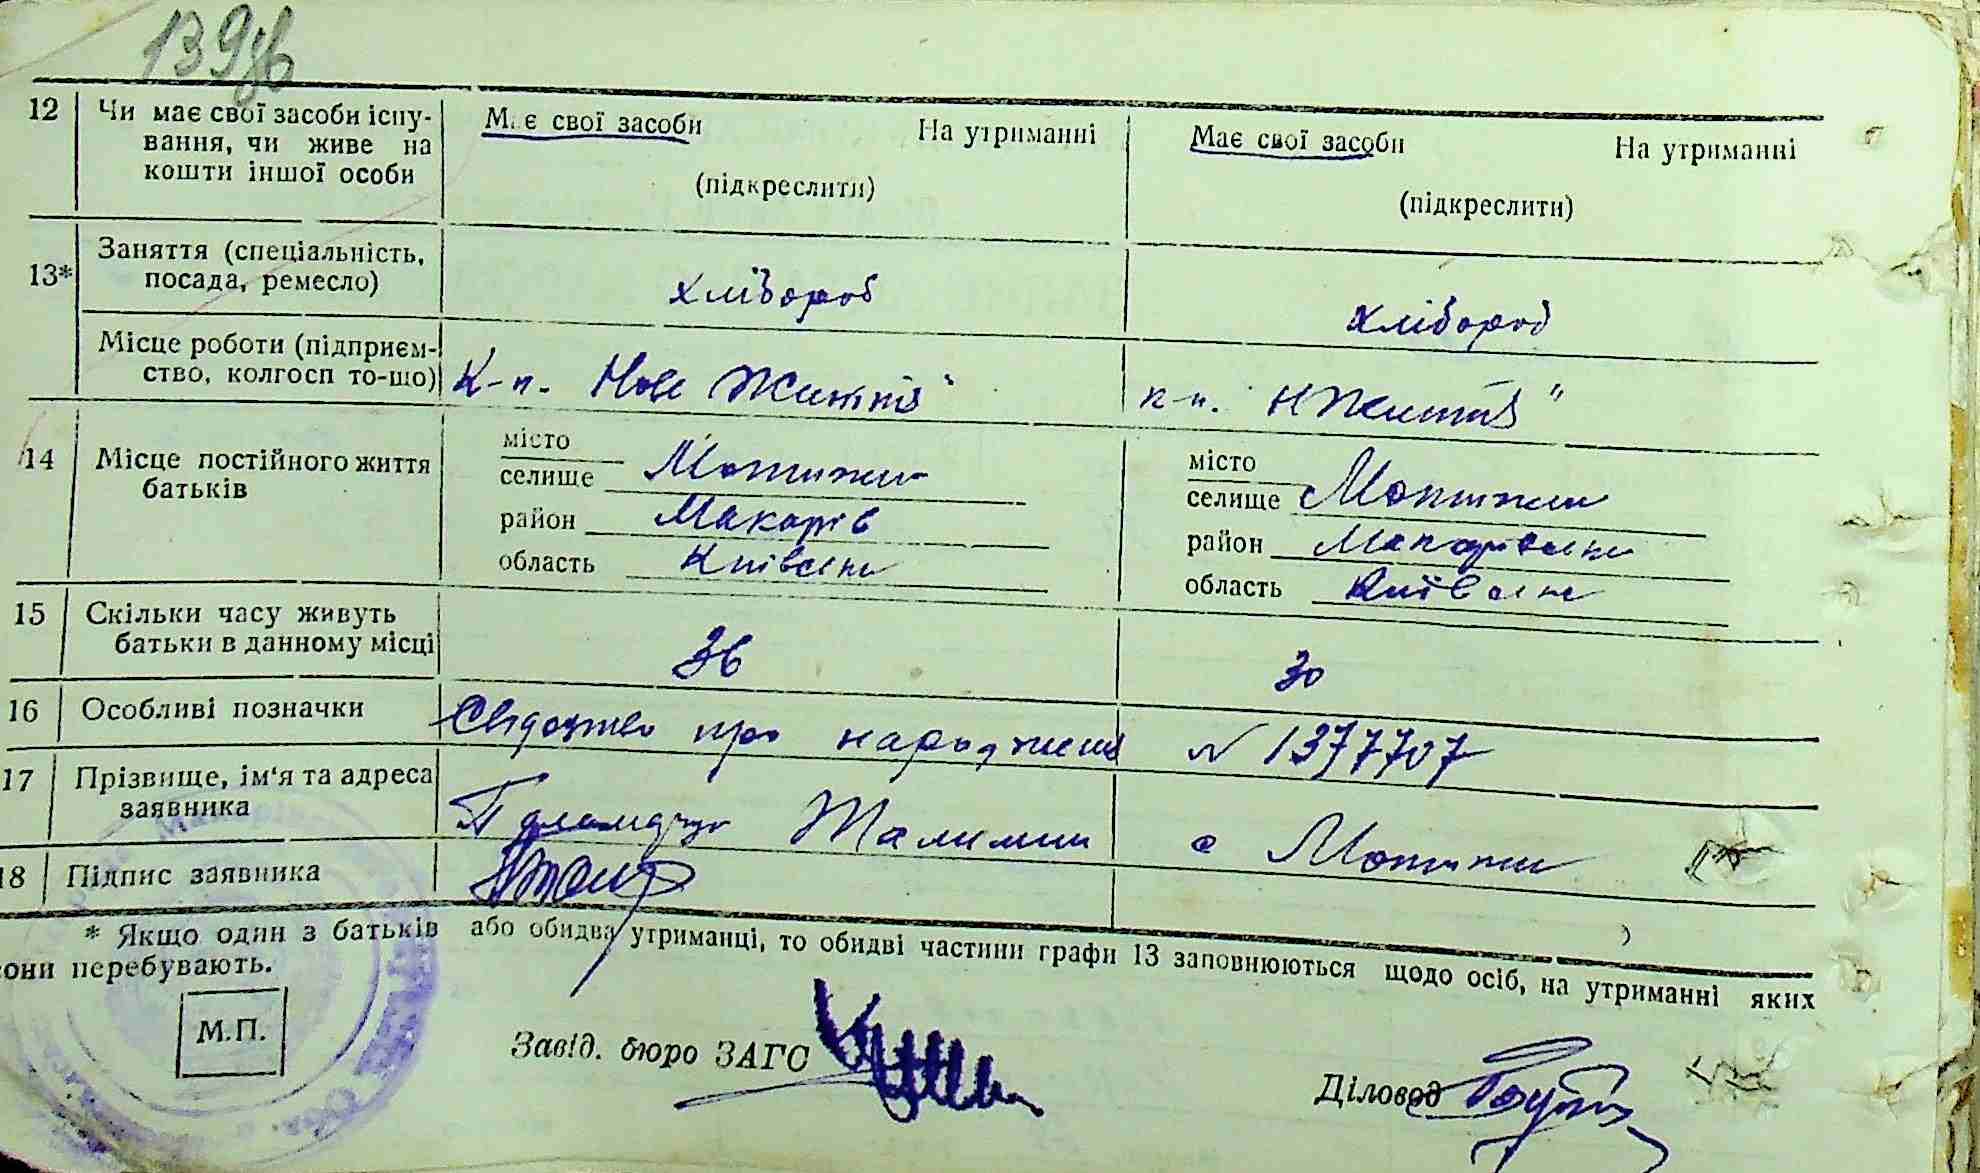 139зв
12 Чи має свої засоби існу- Має свої засоби На утриманні Має свої засоби На утриманні
вання, чи живе на
кошти іншої особи (підкреслити) (підкреслити)
13* Заняття (спеціальність,
посада, ремесло) хлібороб хлібороб
Місце роботи (підприєм-
ство, колгосп то-що) К-п. Нове Життя" к-п. "Н Життя"
14 Місце постійного життя
батьків
місто місто
селище Мотижин селище Мотижин
район Макарів район Макарівськ
область Київськ область Київськ
15 Скільки часу живуть
батьки в данному місці 36 30
16 Особливі позначки Свідоцтво про народження № 1377707
17 Прізвище, ім'я та адреса
заявника с Мотижин
18 Підпис заявника
* Якщо один з батьків або обидва утриманці, то обидві частини графи 13 заповнюються щодо осіб, на утриманні яких
вони перебувають.
М.П.
Завід. бюро ЗАГС
Діловод